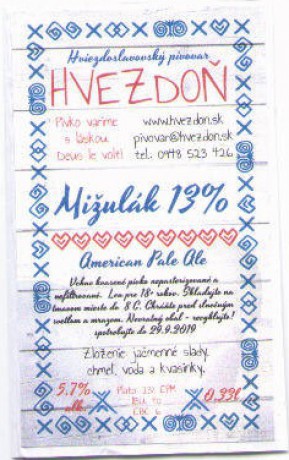 Hviezdoslavovský pivovar
HVEZDOŇ
Pivko varíme
s láskou
Deus le volt!
www.hvezdon.sk
pivovar@hvezdon.sk
tel: 0948 523 426
Mižulák 13%
American Pale Ale
kvasené pivko nepasterizované a
nefiltrované. Len pre 18+ rokov. Skladujte na
tmavom mieste do 8 C. Chráňte pred slnečným
svetlom a mrazom. Nevratný obal - recyklujte!
spotrebujte do 29.9.2019
Zloženie: jačmenné slady,
chmel, voda a kvasinky.
5.7%
alk.
Plato: 13% EPM
IBU: 40
EBC: 6
0,33l